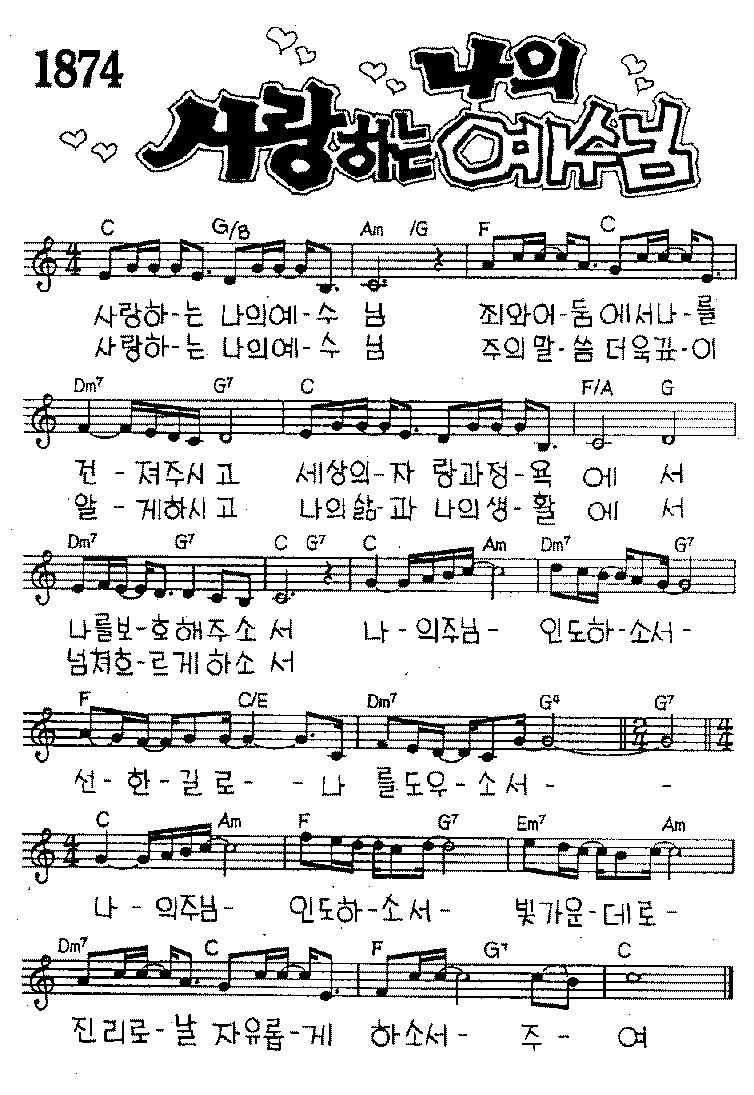 1874
나의
사랑하는 예수님
C G/B Am /G F C
4/4
사랑하-는 나의예-수 님 죄와어-둠에서나-를
사랑하-는 나의예-수 님 주의말-씀더욱깊-이
Dm7 G7 C F/A G
건-져주시고 세상의-자랑과정-욕에서
알-게하시고 나의삶-과나의생-활에서
Dm7 G7 C G7 C Am Dm7 G7
나를보-호해주소서 나-의주님- 인도하-소서-
넘쳐흐-르게하소서
F C/E Dm7 G4 G7
2/4 4/4
선-한-길로--나를도우-소서--
C Am F G7 Em7 Am
4/4
나-의주님- 인도하-소서- 빛가운-데로-
Dm7 C F G7 C
진리로-날 자유롭-게 하소서- 주-여